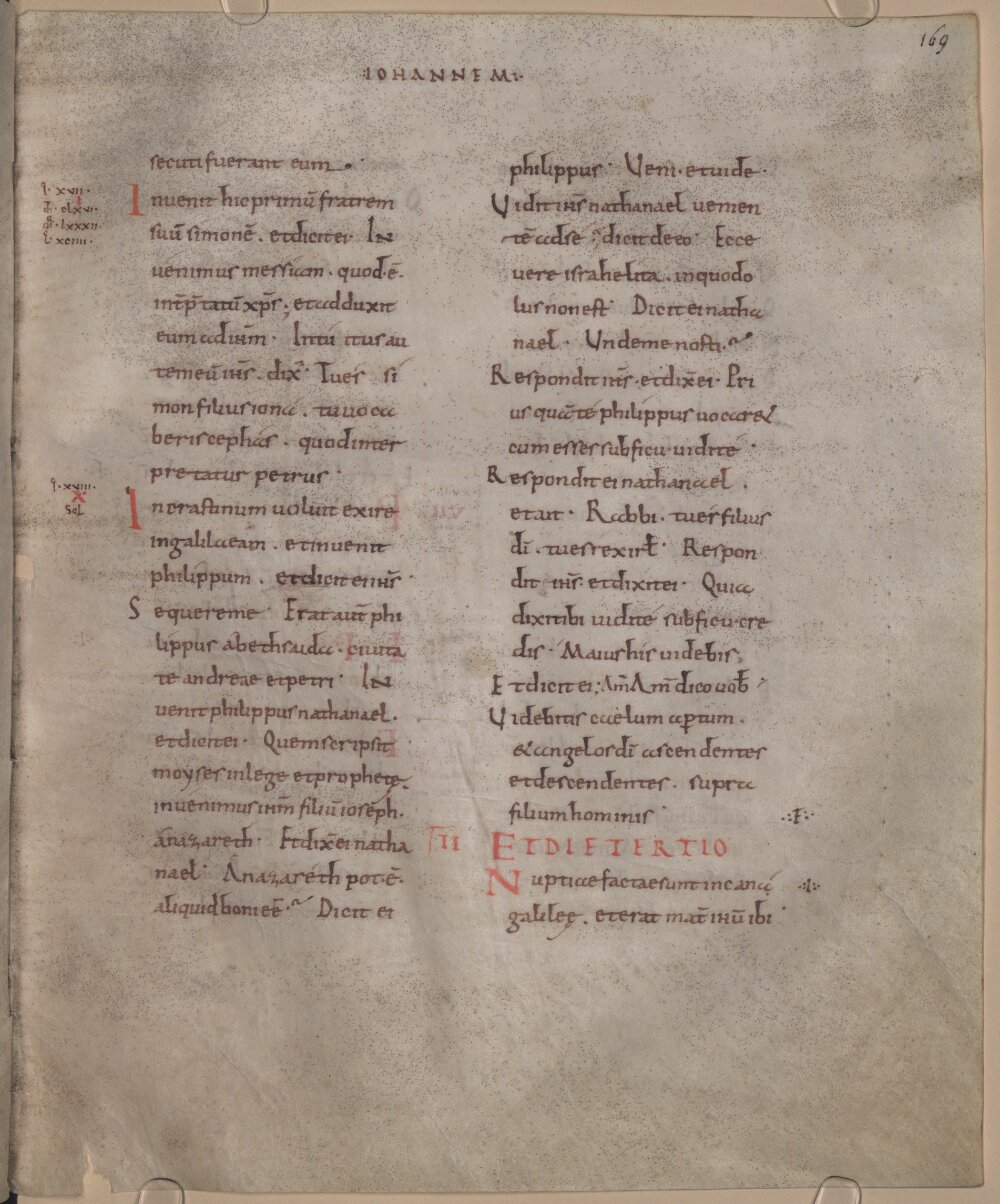 169
IOHANNEM·
secuti fuerant eum ·
I· XVII·
X
M̄· CLXVI·
L· LXXXII·
I· XCIIII·
Inuenit hic primū fratrem
suū simonē. et dicit ei· IN
uenimus messiam· quod· ē·
int̄p̄tatū xp̄s; et adduxit
eum ad ih̄m· Intuitus au
tem eū ih̄s· dix̄· Tu es si
mon filius iona· tu uoca
beris cephas· quod inter
pretatur petrus·
I· XVIII·
X
Sol
In crastinum uoluit exire
in galilaeam· et inuenit
philippum· et dicit ei ih̄s·
Sequere me· Erat aut̄ phi
lippus a bethsaida· ciuita
te andreae et petri· IN
uenit philippus nathanael·
et dicit ei· Quem scripsit
moyses in lege et prophetę
inuenimus ih̄m filiū ioseph·
a nazareth· Et dix̄ ei natha
nael· A nazareth pot· ē·
aliquid boni eē· Dicit ei
philippus· Veni· et uide·
Vidit ih̄s nathanael uenien
tē ad se· & dicit de eo· Ecce
uere israhelita· in quo do
lus non est· Dicit ei natha
nael· Unde me nosti·
Respondit ih̄s· et dix̄ ei· Pri
us quā te philippus uocar&
cum esses sub ficu· uidi te·
Respondit ei nathanael·
et ait· Rabbi· tu es filius
dī· tu es rex isrl̄· Respon
dit ih̄s· et dixit ei· Quia
dixi tibi uidi te sub ficu· cre
dis· Maius his uidebis;
Et dicit ei; Am̄ Am̄ dico uob̄·
Videbitis caelum aptum·
& angelos dī ascendentes
et descendentes· supra
filium hominis· ·:F:·
III ET DIE TERTIO
Nuptiae factae sunt in cana
galileę· et erat mat̄ ih̄u ibi